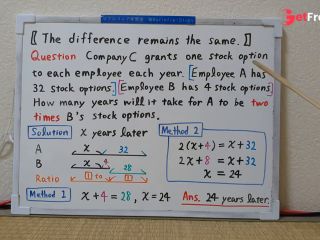 GetFre
〚 The difference remains the same. 〛
Question Company C grants one stock option
to each employee each year. [Employee A has
32 stock options] [Employee B has 4 stock options]
How many years will it take for A to be two
times B's stock options.
Solution x years later
A x 32
B x 4 28
Ratio 1 to 1
Method 1 x + 4 = 28 , x = 24
Method 2
2(x+4) = x + 32
2x + 8 = x + 32
x = 24
Ans. 24 years later.